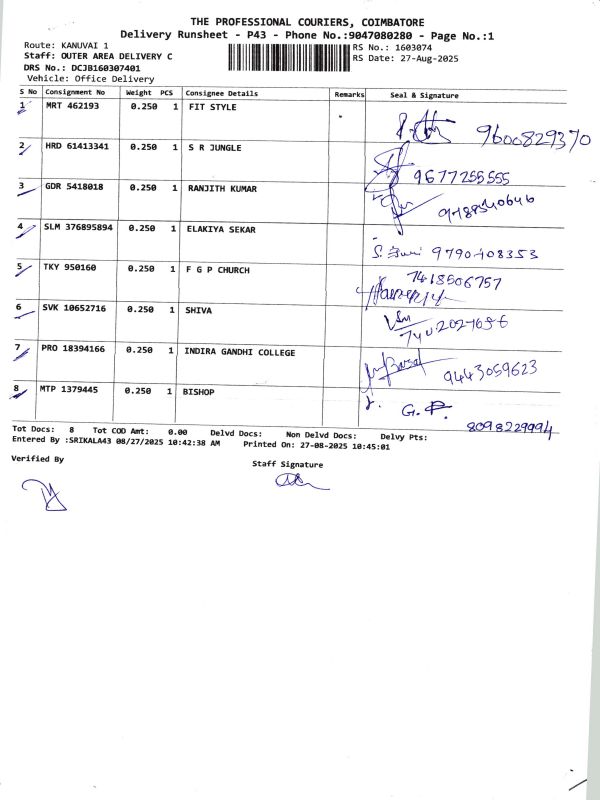 THE PROFESSIONAL COURIERS, COIMBATORE
Delivery Runsheet - P43 - Phone No.:9047080280 - Page No.:1
Route: KANUVAI 1
RS No.: 1603074
Staff: OUTER AREA DELIVERY C
RS Date: 27-Aug-2025
DRS No.: DCJB160307401
Vehicle: Office Delivery
S No Consignment No Weight PCS Consignee Details Remarks Seal & Signature
1 MRT 462193 0.250 1 FIT STYLE 9600829370
2 HRD 61413341 0.250 1 S R JUNGLE 9677255555
3 GDR 5418018 0.250 1 RANJITH KUMAR
4 SLM 376895894 0.250 1 ELAKIYA SEKAR 9790408353
5 TKY 950160 0.250 1 F G P CHURCH 7418506757
6 SVK 10652716 0.250 1 SHIVA
7 PRO 18394166 0.250 1 INDIRA GANDHI COLLEGE 9443059623
8 MTP 1379445 0.250 1 BISHOP 8098229994
Tot Docs: 8 Tot COD Amt: 0.00 Delvd Docs: Non Delvd Docs: Delvy Pts:
Entered By :SRIKALA43 08/27/2025 10:42:38 AM Printed On: 27-08-2025 10:45:01
Verified By
Staff Signature